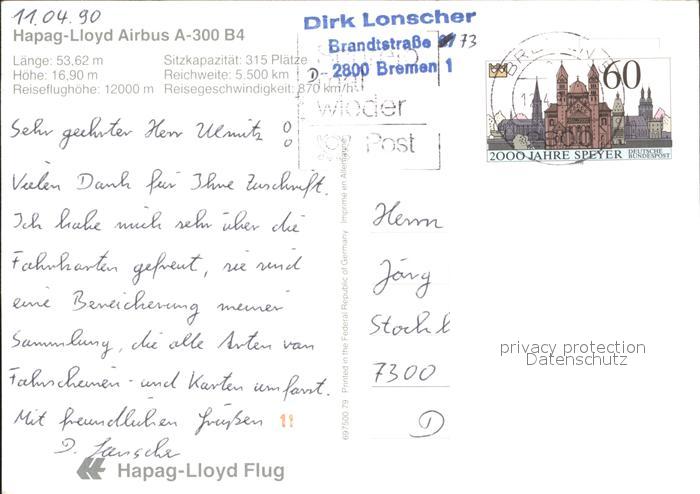 11.04.90
Hapag-Lloyd Airbus A-300 B4
Länge: 53,62 m Sitzkapazität: 315 Plätze
Höhe: 16,90 m Reichweite: 5.500 km
Reiseflughöhe: 12000 m Reisegeschwindigkeit: 870 km/h
Dirk Lonscher
Brandtstraße 73
D- 2800 Bremen 1
wieder
Post
60
2000 JAHRE SPEYER DEUTSCHE BUNDESPOST
Sehr geehrter Herr
Vielen Dank für Ihre Zuschrift.
Ich habe mich sehr über die
Fahrkarten gefreut, sie sind
eine Bereicherung meiner
Sammlung, die alle Arten von
Fahrscheinen- und Karten umfasst.
Mit freundlichen Grüßen !!
D. Lonscher
Hapag-Lloyd Flug
697500 79 Printed in the Federal Republic of Germany Imprimé en Allemagne
Herrn
Jörg
7300
D
privacy protection
Datenschutz